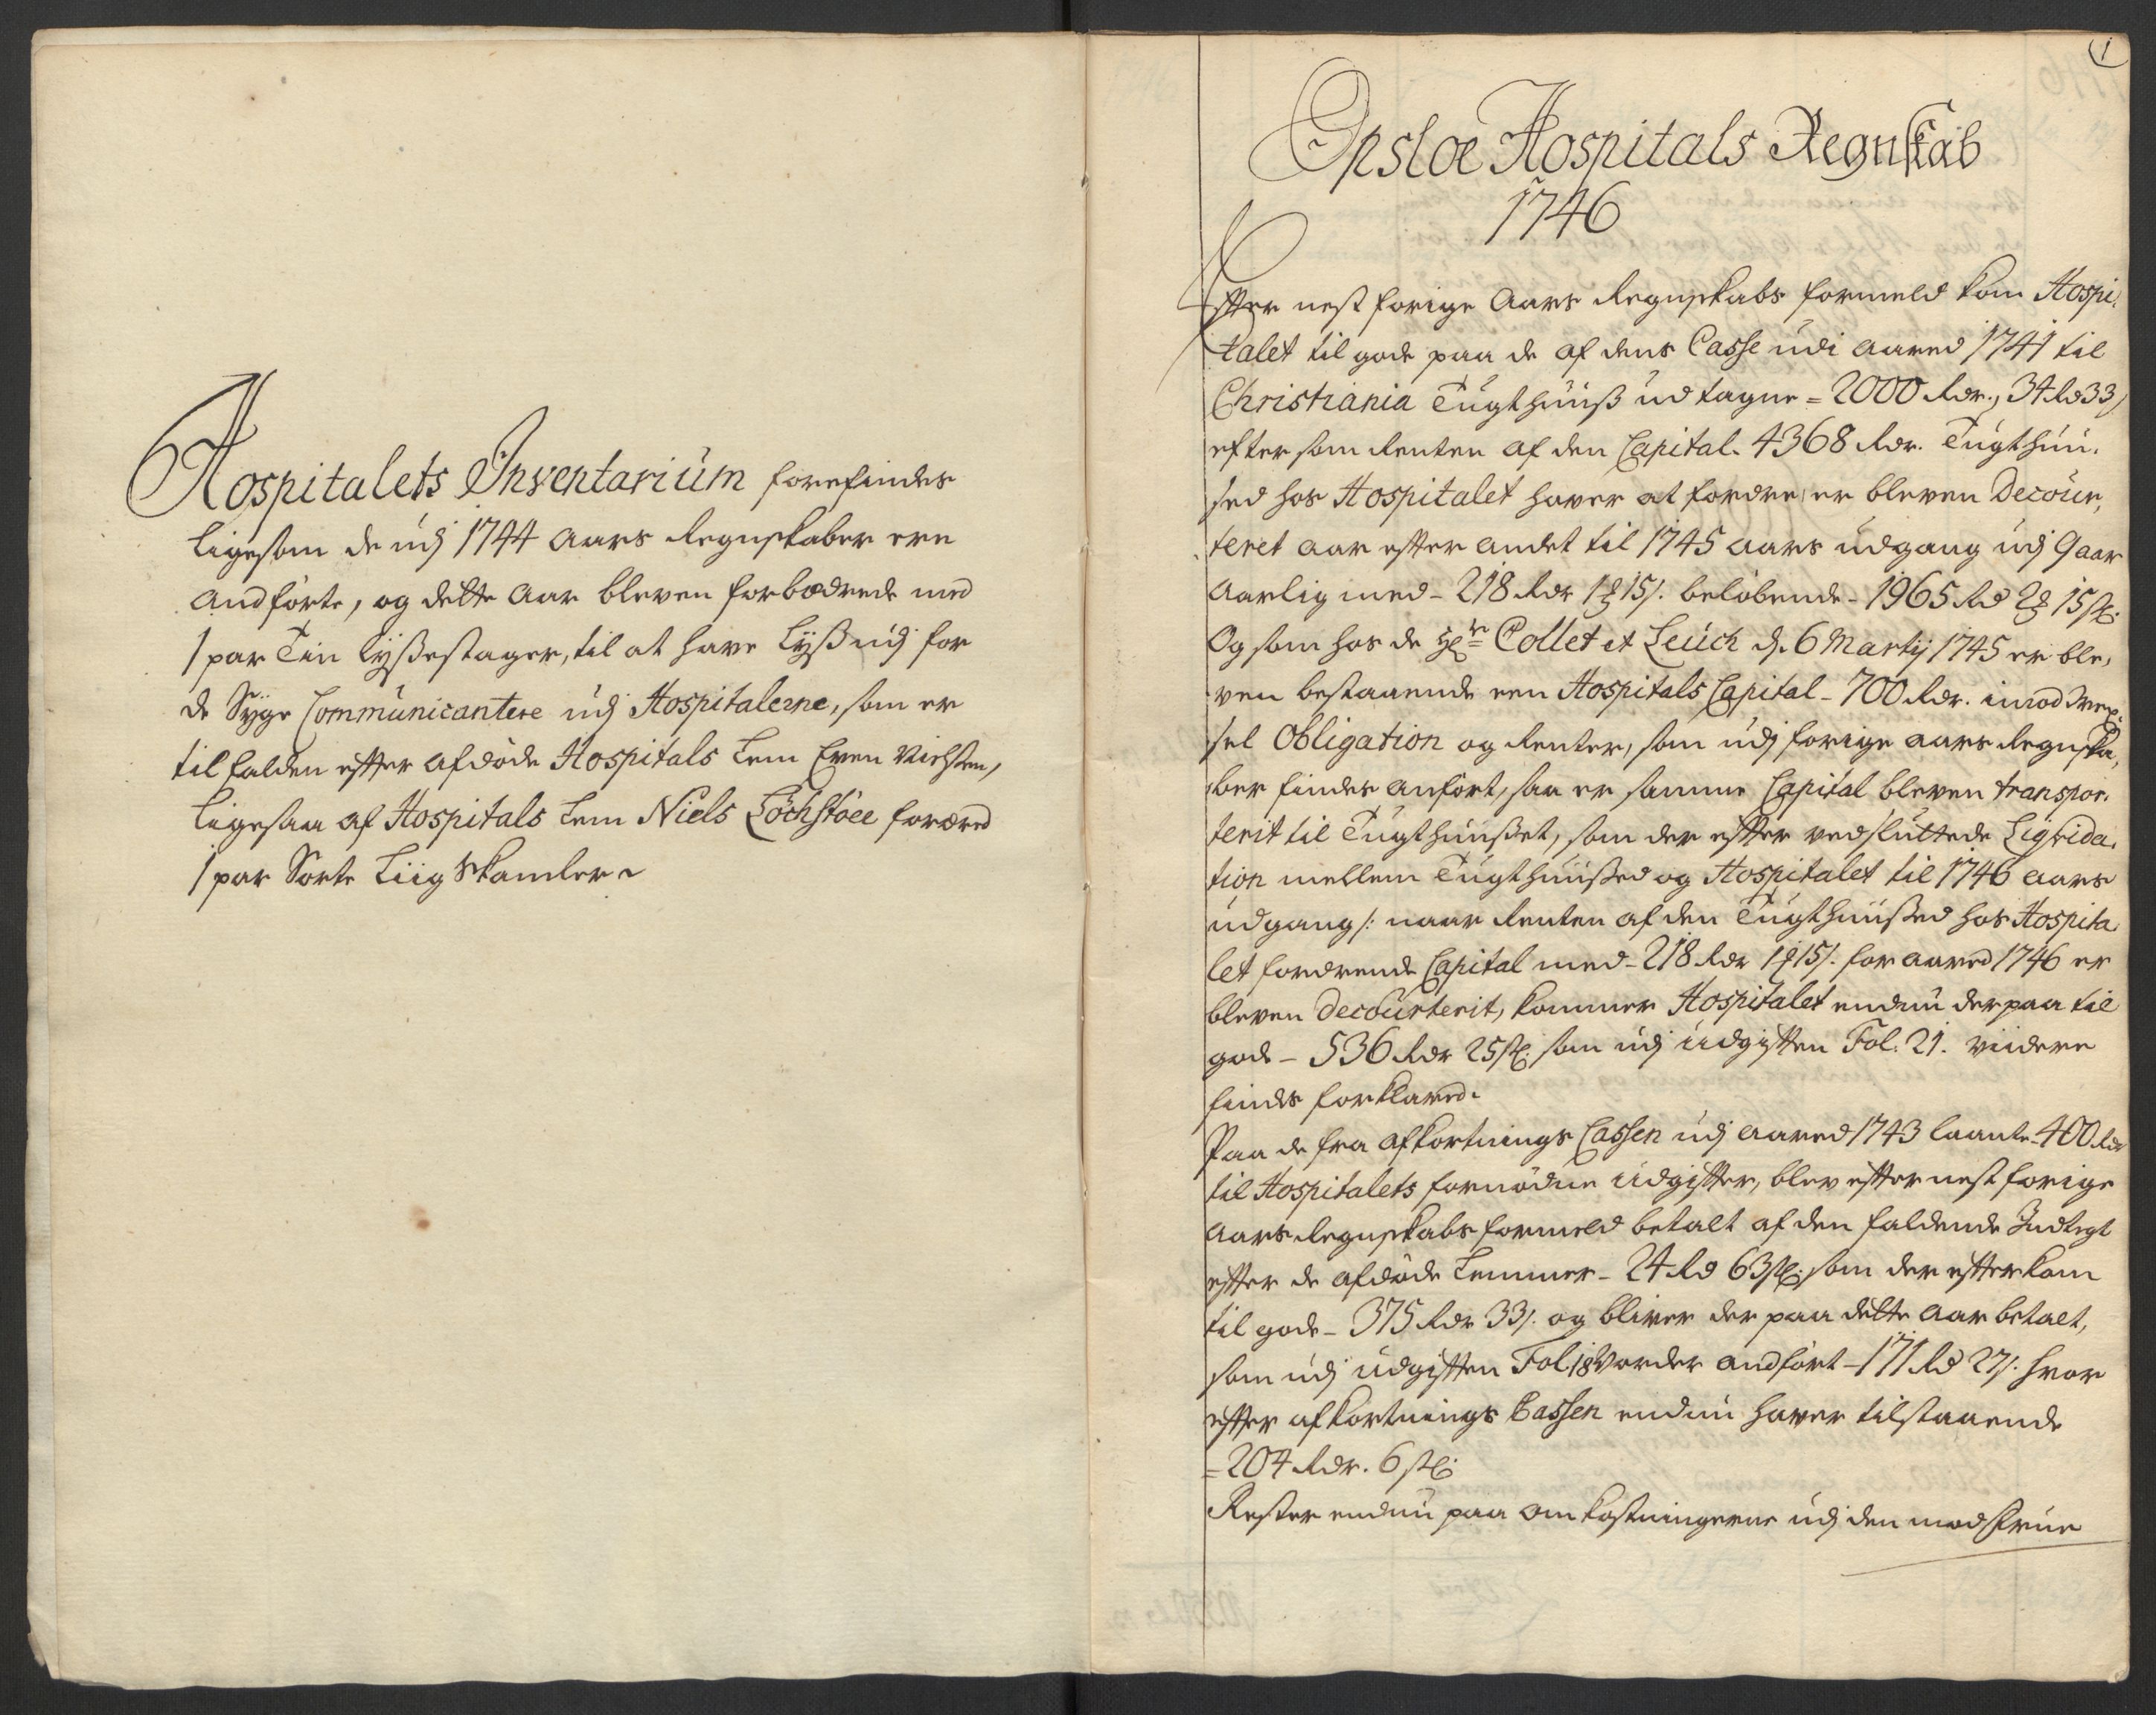 Hospitalets Inventarium forefindes
ligesom de udj 1744 aars Regnskaber ere
andförte, og dette aar bleven forbædrede med
1 par Tin Lyßestager, til at have Lyß udj for
de Syge Communicantere udj Hospitalerne, som er
til falden efter afdöde Hospitals Lem Even
ligesaa af Hospitals Lem Niels Löchstöer foræred
1 par Sorte Liig Skamler
1
Opsloe Hospitals Regnskab
1746
Efter nest forige Aars Regnskabs formeld kom Hospi-
talet til gode paa de af dens Casse udi aared 1741 til
Christiania Tugthuuß udtagne = 2000 Rdr., 34 Rd 33/
eftersom Renten af den Capital 4368 Rdr. Tugthuu-
sed hos Hospitalet haver at fordre, er bleven Decour-
teret aar efter andet til 1745 aars udgang udj 9 aar
aarlig med - 218 Rdr 1 ₰ 15/. belöbende - 1965 Rd 2 ₰ 15 sk:
Og som hos de Hr Collet et Leuch d. 6 Martij 1745 er ble-
ven bestaaende een Hospitals Capital - 700 Rdr. imod Vex-
sel Obligation og Renter, som udj forige aars Regnska-
ber findes anfört, saa er samme Capital bleven transpor-
terit til Tugthuußet, som der efter ved sluttede Liqvida-
tion mellem Tugthuußed og Hospitalet til 1746 aars
udgang /: naar Renten af den Tugthuußed hos Hospita-
let fordrende Capital med - 218 Rdr 1 ₰ 15/. for aared 1746 er
bleven Decourterit, kommer Hospitalet endnu derpaa til
gode - 536 Rdr 25 sk: som udj Udgiften Fol. 21. viidere
findes forklared.
Paa de fra afkortnings Cassen udj aared 1743 laante 400 Rdr
til Hospitalets fornödne Udgifter, blev efter nest forige
aars Regnskabs formeld betalt af den faldende Indtegt
efter de afdöde Lemmer - 24 Rd 63 sk: som der efter kom
til gode - 375 Rdr 33/. og bliver der paa dette aar betalt,
som udj udgiften Fol. 18 vorder andfört - 171 Rd 27/. hvor
efter afkortnings Cassen endnu haver tilstaaende
= 204 Rdr. 6 sk:
Rester endnu paa omkostningerne udj den mod Frue